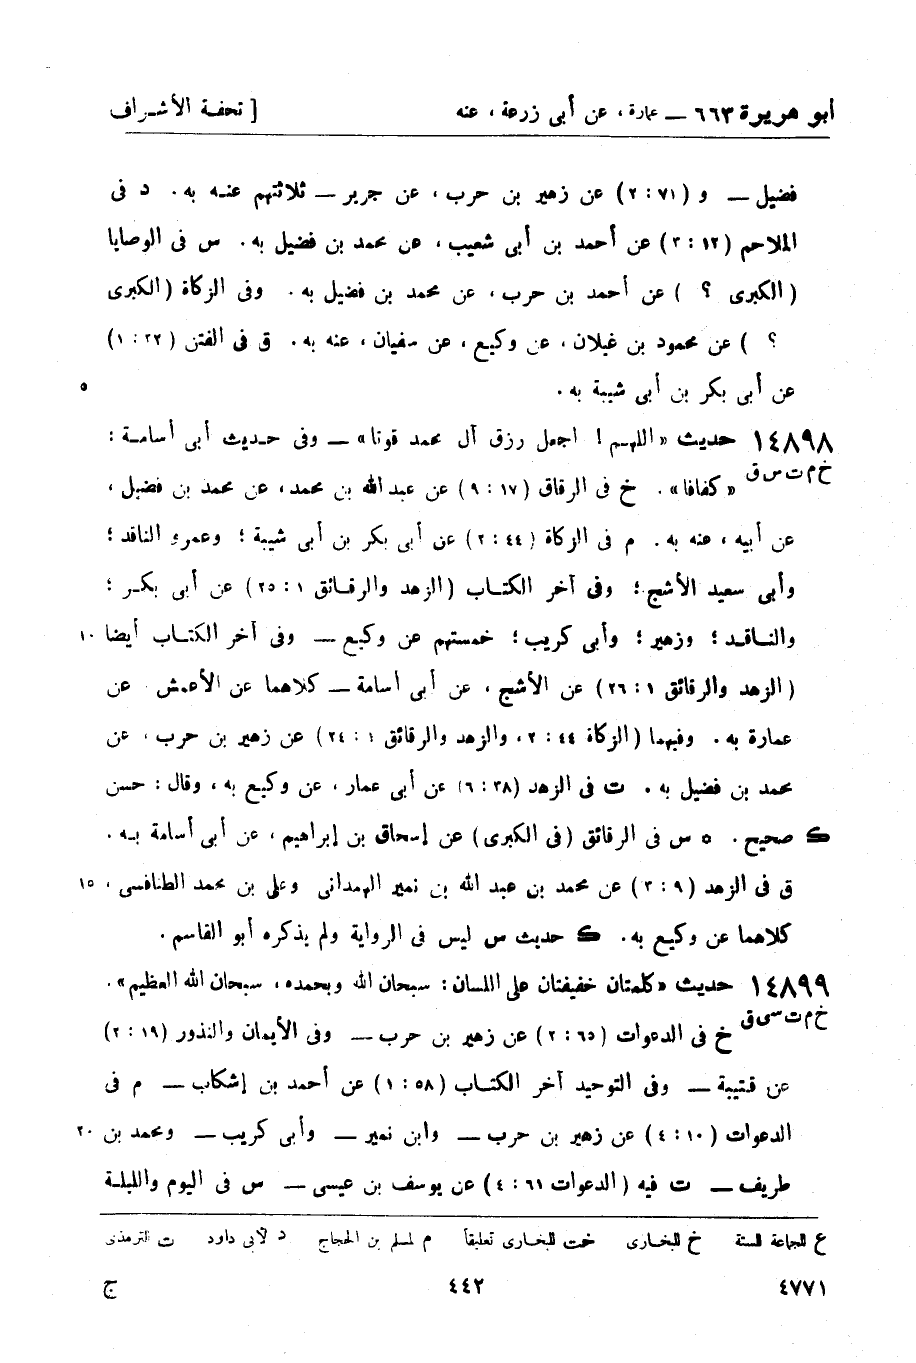 أبو هريرة ٦٦٣ ــ عمارة ، عن أبى زرعة ، عنه [ تحفة الأشراف
فضيل ــ و (٧١ : ٢) عن زهير بن حرب ، عن جرير ــ ثلاثتهم عنه به . د فى
الملاحم (١٢ : ٣) عن أحمد بن أبى شعيب ، عن محمد بن فضيل به . س فى الوصايا
( الكبرى ؟ ) عن أحمد بن حرب ، عن محمد بن فضيل به . وفى الزكاة (الكبرى
؟ ) عن محمود بن غيلان ، عن وكيع ، عن سفيان ، عنه به . ق فى الفتن (٣٢ : ١)
عن أبى بكر بن أبى شيبة به . ٥
١٤٨٩٨ حديث « اللهم ! اجعل رزق آل محمد قوتا» ــ وفى حديث أبى أسامة :
خ م ت س ق « كفافا» . خ فى الرقاق (١٧ : ٩) عن عبد الله بن محمد ، عن محمد بن فضيل ،
عن أبيه ، عنه به . م فى الزكاة (٤٤ : ٢) عن أبى بكر بن أبى شيبة ؛ وعمرو الناقد ؛
وأبى سعيد الأشج ؛ وفى آخر الكتاب (الزهد والرقائق ١ : ٢٥) عن أبى بكر ؛
والناقد ؛ وزهير ؛ وأبى كريب ؛ خمستهم عن وكيع ــ وفى آخر الكتاب أيضا ١٠
(الزهد والرقائق ١ : ٢٦) عن الأشج ، عن أبى أسامة ــ كلاهما عن الأعمش عن
عمارة به . وفيهما (الزكاة ٤٤ : ٢ ، والزهد والرقائق ١ : ٢٤) عن زهير بن حرب ، عن
محمد بن فضيل به . ت فى الزهد (٣٨ : ٦) عن أبى عمار ، عن وكيع به ، وقال : حسن
ك صحيح . ٥ س فى الرقائق (فى الكبرى) عن إسحاق بن إبراهيم ، عن أبى أسامة به .
ق فى الزهد (٩ : ٣) عن محمد بن عبد الله بن نمير الهمدانى وعلى بن محمد الطنافسى ، ١٥
كلاهما عن وكيع به . ك حديث س ليس فى الرواية ولم يذكره أبو القاسم .
١٤٨٩٩ حديث «كلمتان خفيفتان على اللسان : سبحان الله وبحمده ، سبحان الله العظيم» .
خ م ت سى ق خ فى الدعوات (٦٥ : ٢) عن زهير بن حرب ــ وفى الأيمان والنذور (١٩ : ٢)
عن قتيبة ــ وفى التوحيد آخر الكتاب (٥٨ : ١) عن أحمد بن إشكاب ــ م فى
الدعوات (١٠ : ٤) عن زهير بن حرب ــ وابن نمير ــ وأبى كريب ــ ومحمد بن ٢٠
طريف ــ ت فيه (الدعوات ٦١ : ٤) عن يوسف بن عيسى ــ س فى اليوم والليلة
ع للجماعة الستة خ للبخارى خت للبخارى تعليقاً م لمسلم بن الحجاج د لأبى داود ت للترمذى
٤٧٧١ ٤٤٢ ج